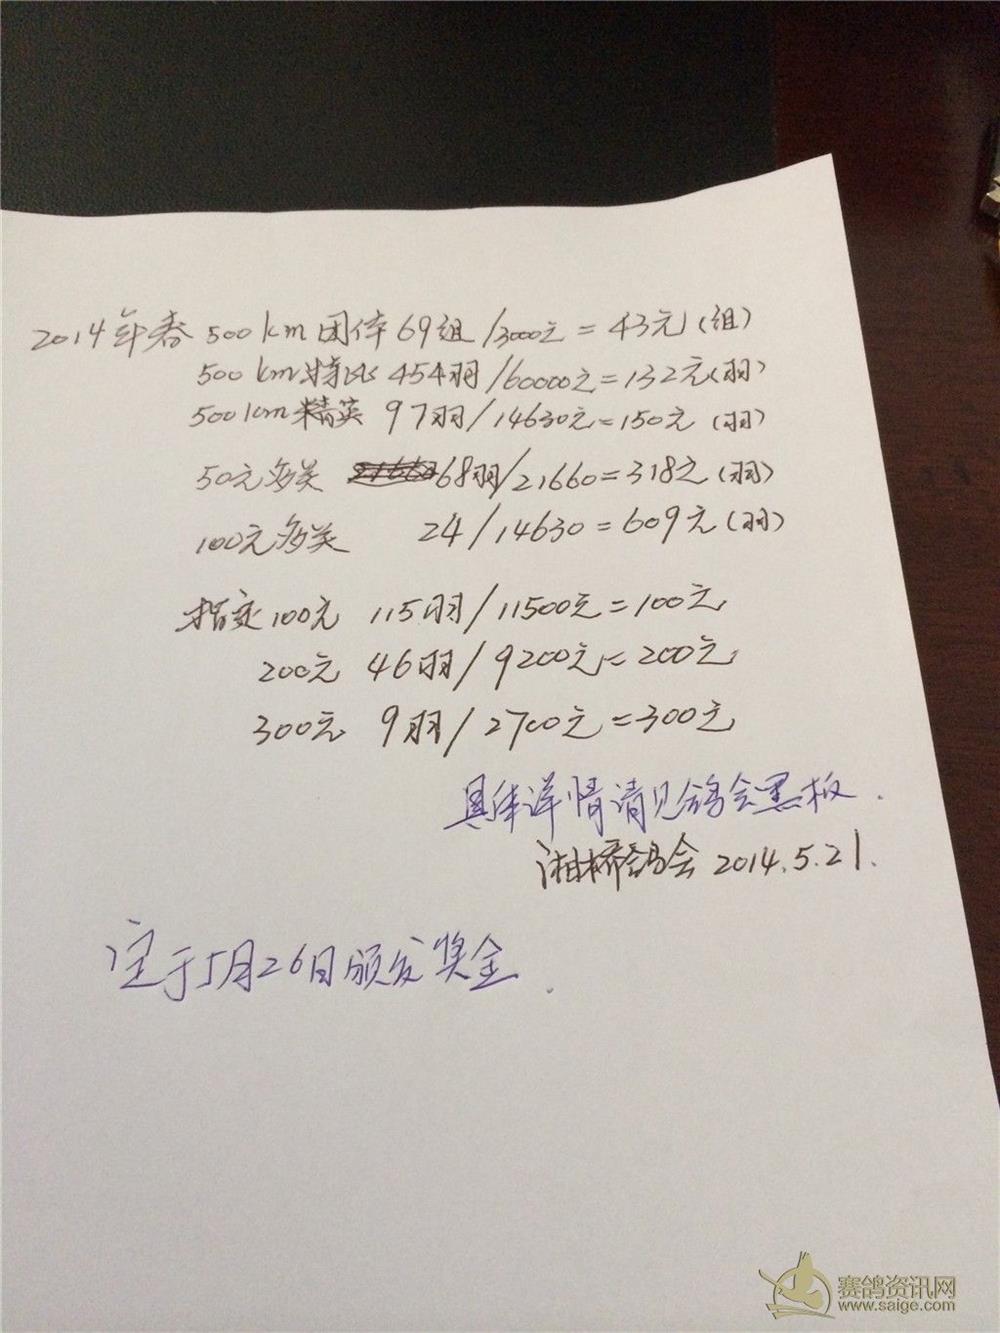 2014年春 500km团体 69组/3000元=43元(组)
500km特比 454羽/60000元=132元(羽)
500km精英 97羽/14630元=150元(羽)
50元多关 68羽/21660=318元(羽)
100元多关 24/14630=609元(羽)
指定100元 115羽/11500元=100元
200元 46羽/9200元=200元
300元 9羽/2700元=300元
具体详情请见鸽会黑板.
湘桥鸽会 2014.5.21.
定于5月26日颁发奖金.
赛鸽资讯网
www.saige.com